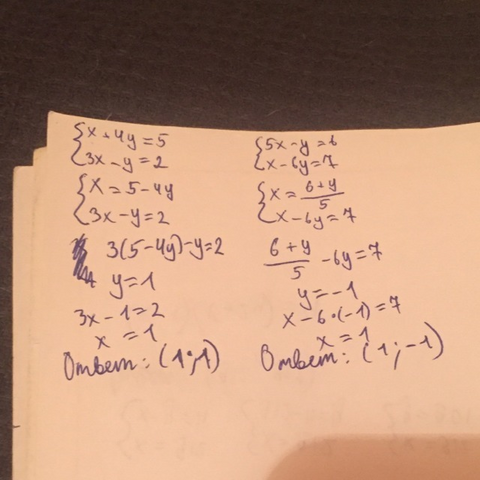 x + 4y = 5
3x - y = 2
x = 5 - 4y
3x - y = 2
3(5 - 4y) - y = 2
y = 1
3x - 1 = 2
x = 1
Ответ: (1; 1)
5x - y = 6
x - 6y = 7
x = (6 + y)/5
x - 6y = 7
(6 + y)/5 - 6y = 7
y = -1
x - 6 • (-1) = 7
x = 1
Ответ: (1; -1)